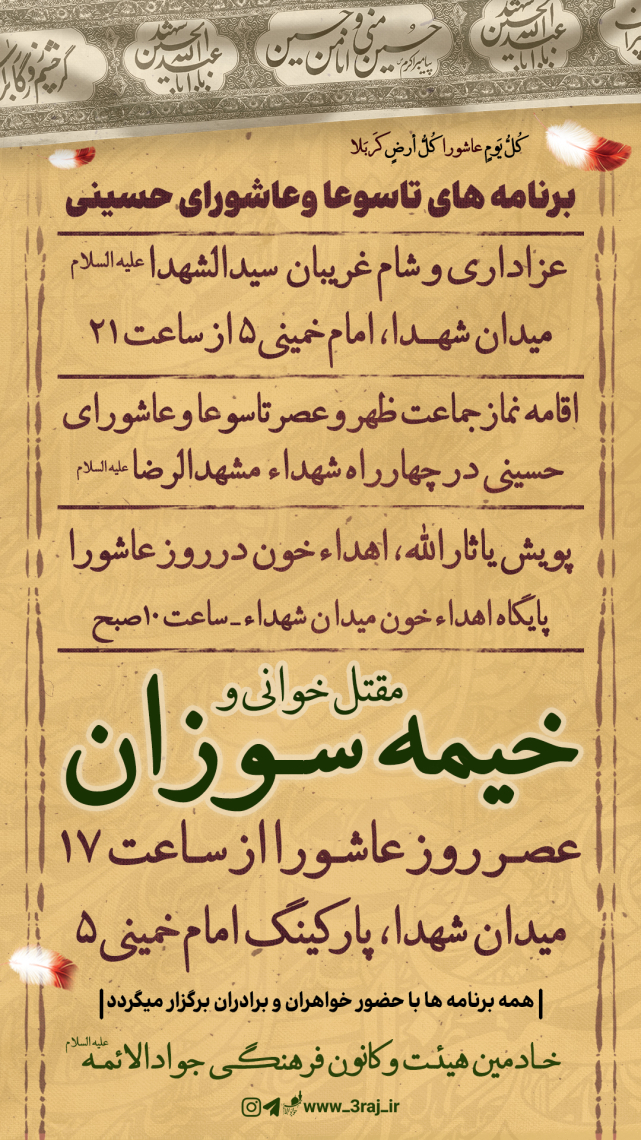 عبدالله الحسین
حسین منی و انا من حسین
پیامبر اکرم
کُلُّ یَومٍ عاشورا کُلُّ أرضٍ کَربَلا
برنامه های تاسوعا وعاشورای حسینی
عزاداری و شام غریبان سیدالشهدا علیه السلام
میدان شهدا، امام خمینی ۵ از ساعت ۲۱
اقامه نماز جماعت ظهر و عصر تاسوعا و عاشورای
حسینی در چهارراه شهداء مشهدالرضا علیه السلام
پویش یا ثارالله، اهداء خون در روز عاشورا
پایگاه اهداء خون میدان شهداء - ساعت ۱۰ صبح
مقتل خوانی و
خیمه سوزان
عصر روز عاشورا از ساعت ۱۷
میدان شهدا، پارکینگ امام خمینی ۵
| همه برنامه ها با حضور خواهران و برادران برگزار میگردد |
خادمین هیئت و کانون فرهنگی جوادالائمه علیه السلام
www_3raj_ir